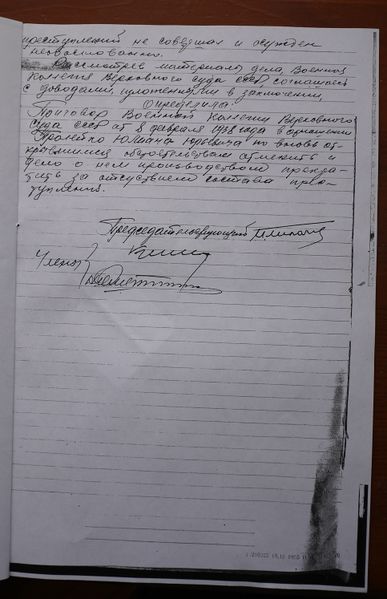 преступлений не совершал и осужден
необоснованно.
Рассмотрев материалы дела, Военная
Коллегия Верховного суда СССР, соглашаясь
с доводами, изложенными в заключении,
Определила:
Приговор Военной Коллегии Верховного
Суда СССР от 8 февраля 1938 года в отношении
Юлиана Юрьевича по вновь от-
крывшимся обстоятельствам отменить и
дело о нем производством прекра-
тить за отсутствием состава прес-
тупления.
Председательствующий
Члены